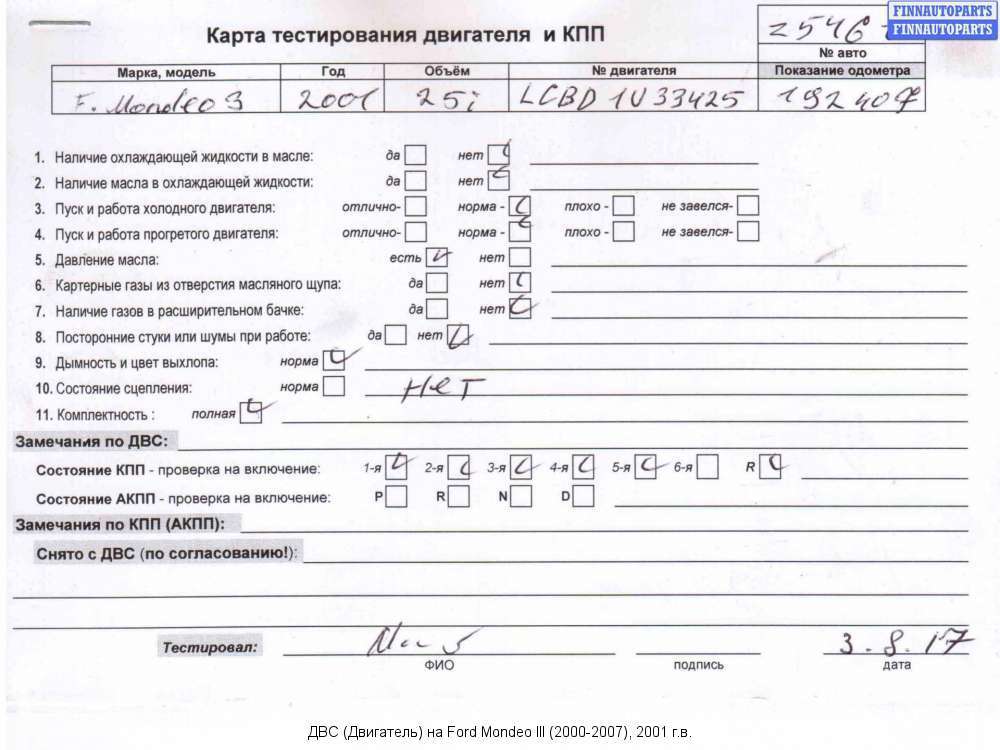 FINNAUTOPARTS
FINNAUTOPARTS
Карта тестирования двигателя и КПП
№ авто
Марка, модель Год Объём № двигателя Показание одометра
F. Mondeo 3 2001 25i LCBD 1U33425 192407
1. Наличие охлаждающей жидкости в масле: да нет
2. Наличие масла в охлаждающей жидкости: да нет
3. Пуск и работа холодного двигателя: отлично- норма - плохо - не завелся-
4. Пуск и работа прогретого двигателя: отлично- норма - плохо - не завелся-
5. Давление масла: есть нет
6. Картерные газы из отверстия масляного щупа: да нет
7. Наличие газов в расширительном бачке: да нет
8. Посторонние стуки или шумы при работе: да нет
9. Дымность и цвет выхлопа: норма
10. Состояние сцепления: норма нет
11. Комплектность : полная
Замечания по ДВС:
Состояние КПП - проверка на включение: 1-я 2-я 3-я 4-я 5-я 6-я R
Состояние АКПП - проверка на включение: P R N D
Замечания по КПП (АКПП):
Снято с ДВС (по согласованию!):
Тестировал: 3.8.17
ФИО подпись дата
ДВС (Двигатель) на Ford Mondeo III (2000-2007), 2001 г.в.